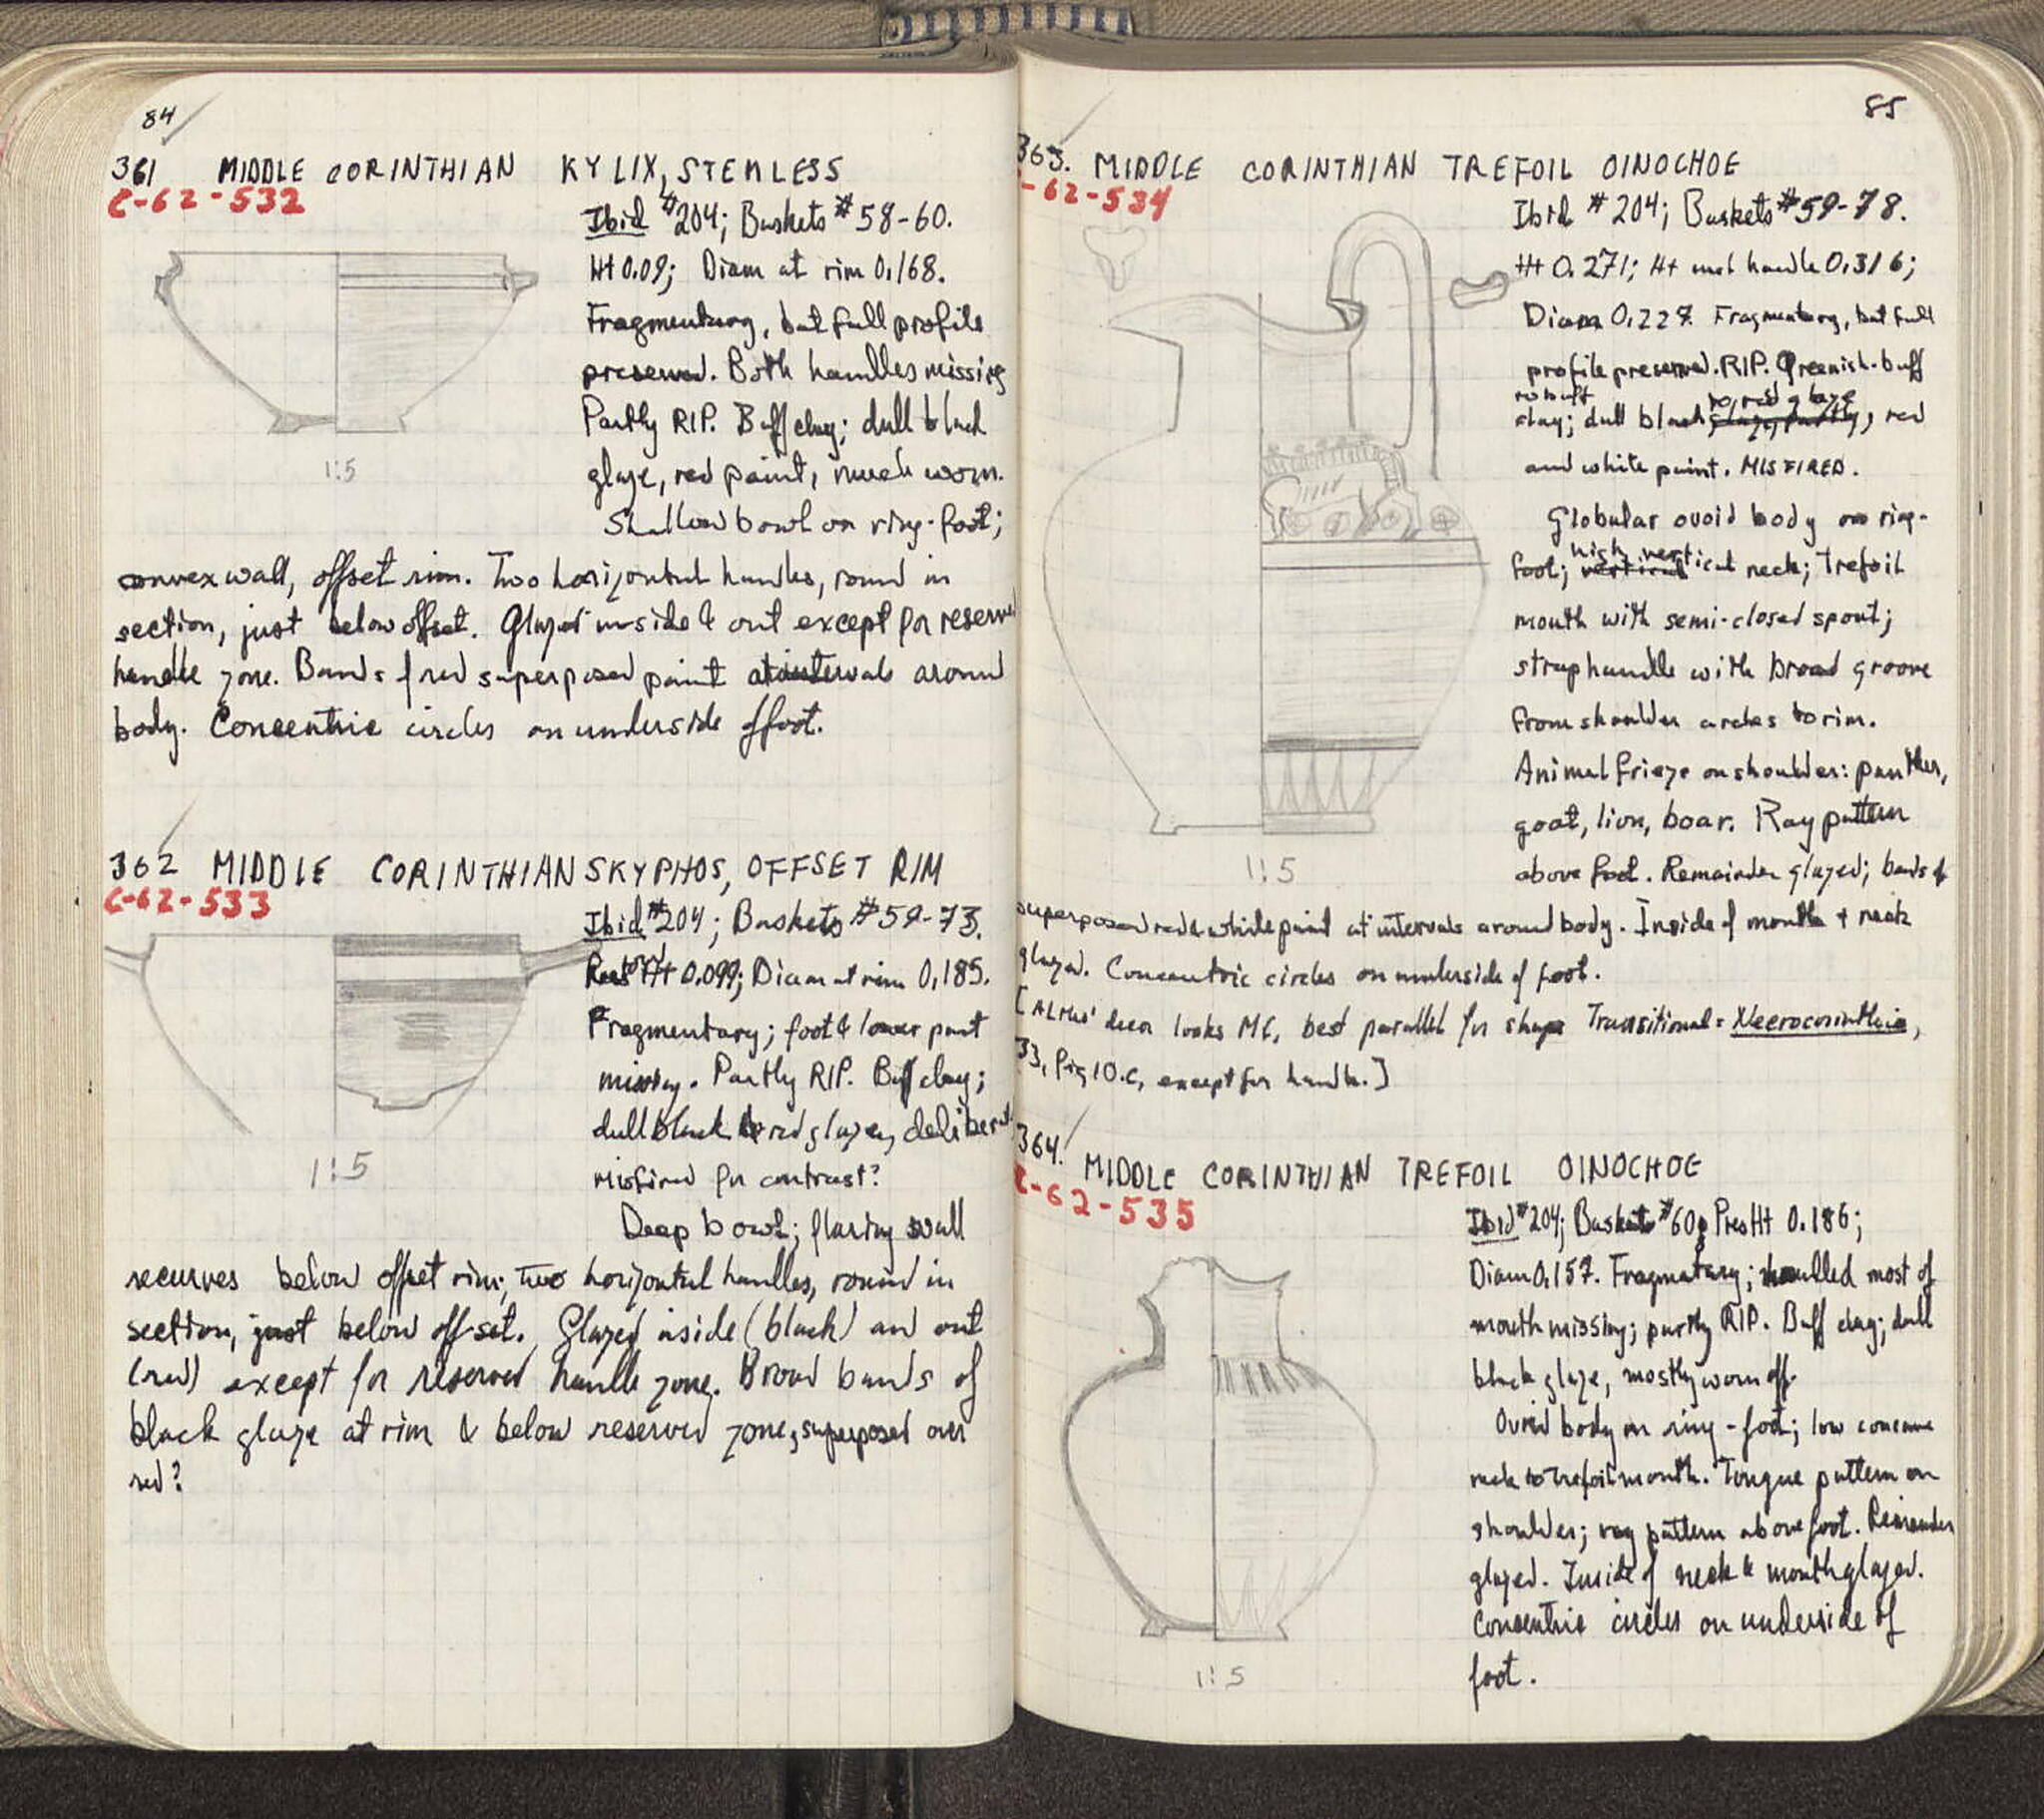 84
361 MIDDLE CORINTHIAN KYLIX, STEMLESS
C-62-532
Ibid #204; Baskets #58-60.
Ht 0.09; Diam at rim 0.168.
Fragmentary, but full profile
preserved. Both handles missing
Partly RIP. Buff clay; dull black
glaze, red paint, much worn.
Shallow bowl on ring-foot;
convex wall, offset rim. Two horizontal handles, round in
section, just below offset. Glazed inside & out except for reserved
handle zone. Bands of red superposed paint at intervals around
body. Concentric circles on underside of foot.
1:5
362 MIDDLE CORINTHIAN SKYPHOS, OFFSET RIM
C-62-533
Ibid #204; Baskets #59-73.
Ht 0.099; Diam at rim 0.185.
Fragmentary; foot & lower part
missing. Partly RIP. Buff clay;
dull black to red glaze, deliberat.
misfired for contrast?
Deep bowl; flaring wall
recurves below offset rim; two horizontal handles, round in
section, just below off-set. Glazed inside (black) and out
(red) except for reserved handle zone. Broad bands of
black glaze at rim & below reserved zone, superposed over
red?
1:5
85
363. MIDDLE CORINTHIAN TREFOIL OINOCHOE
-62-534
Ibid #204; Baskets #59-78.
Ht 0.271; Ht incl handle 0.316;
Diam 0.227. Fragmentary, but full
profile preserved. RIP. Greenish-buff
to buff to red glaze
clay; dull black glaze, partly, red
and white paint. MISFIRED.
Globular ovoid body on ring-
high vertical
foot; vertical neck; trefoil
mouth with semi-closed spout;
strap handle with broad groove
from shoulder arches to rim.
Animal frieze on shoulder: panther,
goat, lion, boar. Ray pattern
above foot. Remainder glazed; bands of
superposed red & white paint at intervals around body. Inside of mouth & neck
glazed. Concentric circles on underside of foot.
[Altho' decn looks MC, best parallel for shape Transitional = Necrocorinthia,
33, Fig 10.C, except for handle.]
1:5
364. MIDDLE CORINTHIAN TREFOIL OINOCHOE
C-62-535
Ibid #204; Baskets #60; Pres Ht 0.186;
Diam 0.157. Fragmentary; most of
mouth missing; partly RIP. Buff clay; dull
black glaze, mostly worn off.
Ovoid body on ring-foot; low concave
neck to trefoil mouth. Tongue pattern on
shoulder; ray pattern above foot. Remainder
glazed. Inside of neck & mouth glazed.
Concentric circles on underside of
foot.
1:5